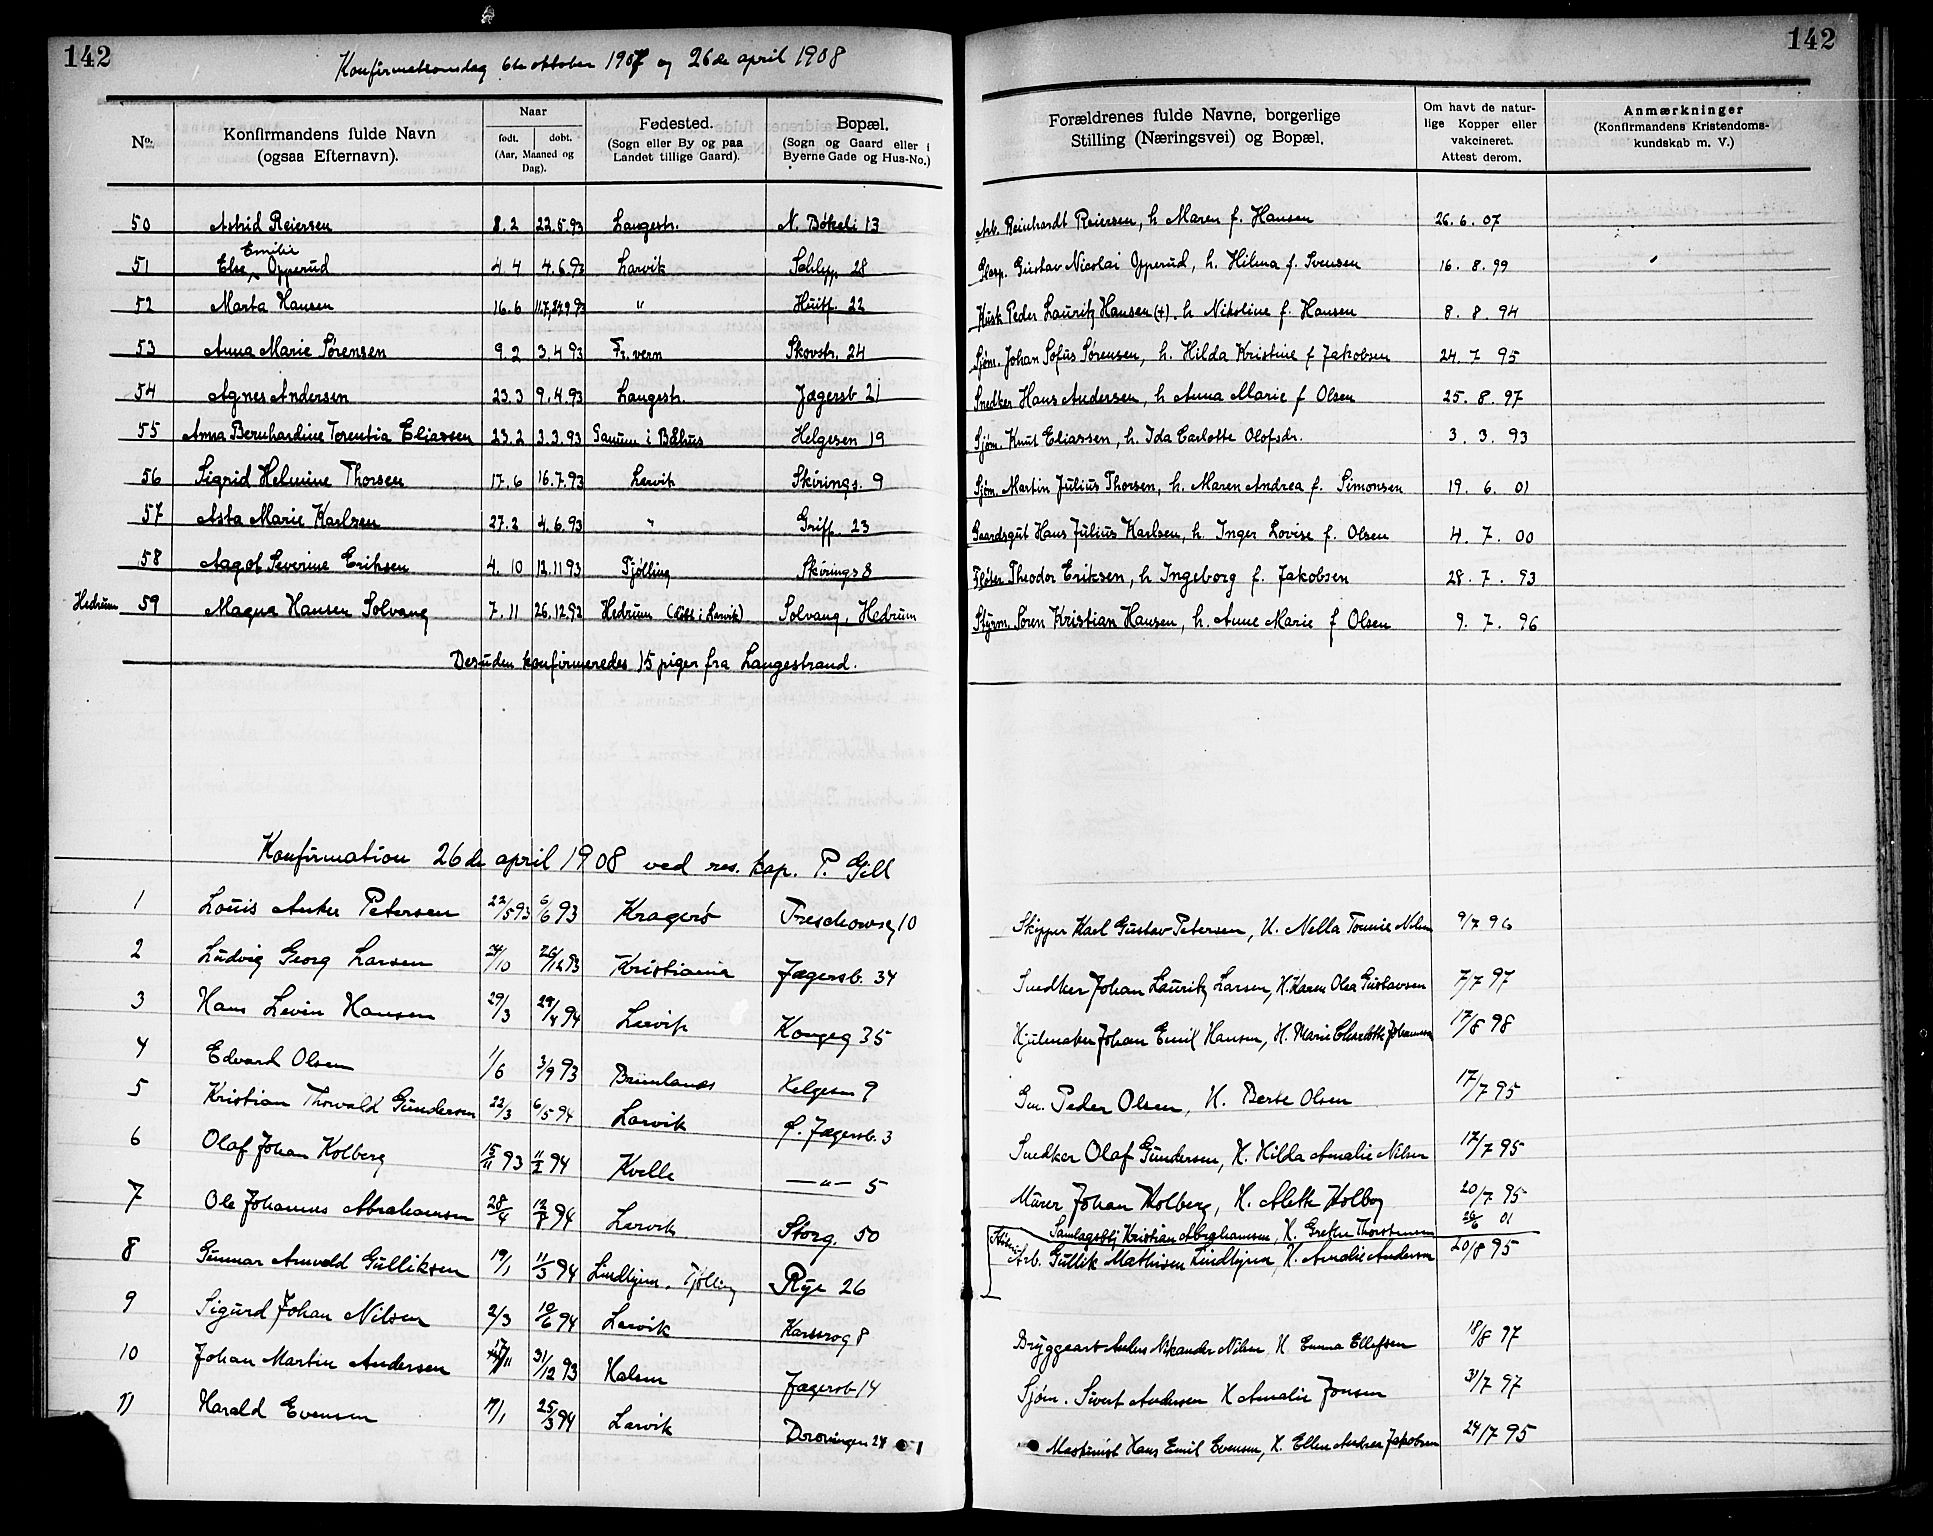 142
Konfirmationsdag 6te oktober 1907 og 26de april 1908
No.
Konfirmandens fulde Navn (ogsaa Efternavn).
Naar født. døbt. (Aar, Maaned og Dag).
Fødested. (Sogn eller By og paa Landet tillige Gaard).
Bopæl. (Sogn og Gaard eller i Byerne Gade og Hus-No.)
50 Astrid Reiersen 8.2 22.5.93 Langestr. N. Bøkeli 13
51 Else Emilie Opperud 4.4 4.6.93 Larvik Schlyp. 28
52 Marta Hansen 16.6 " Huitf. 22
53 Anna Marie Sørensen 9.2 3.4.93 Fr.vern Skovstr. 24
54 Agnes Andersen 23.3 9.4.93 Langestr. Jegersb 21
55 Anna Bernhardine Terentia Eliassen 23.2 3.3.93 Tanum i Båhus Helgesen 19
56 Sigrid Helmine Thorsen 17.6 16.7.93 Larvik Skirings. 9
57 Asta Marie Karlsen 27.2 4.6.93 " Griff. 23
58 Aagot Severine Eriksen 4.10 12.11.93 Tjølling Skirings 8
Hedrum 59 Magna Hansen Solvang 7.11 26.12.93 Hedrum (døbt i Larvik) Solvang, Hedrum
Desuden konfirmeredes 15 piger fra Langestrand.
Konfirmation 26de april 1908 ved res. kap. P. Gill
1 Louis Anker Petersen 22/5 93 6/6 93 Kragerø Treschowsg 10
2 Ludvig Georg Larsen 24/10 26/12 93 Kristiania Jægersb. 34
3 Hans Levin Hansen 29/3 29/4 94 Larvik Kongeg 35
4 Edvard Olsen 1/6 3/9 93 Brunlanæs Helgesen 9
5 Kristian Thorvald Gundersen 22/3 6/5 94 Larvik f. Jægersb. 3
6 Olaf Johan Kolberg 15/11 93 11/2 94 Kvelle —"— 5
7 Ole Johannes Abrahamsen 28/4 12/8 94 Larvik Storg. 50
8 Gunnar Arnvald Gulliksen 19/1 11/3 94 Lindhjem, Tjølling Rye 26
9 Sigurd Johan Nilsen 2/3 10/6 94 Larvik Karlsrog 8
10 Johan Martin Andersen 17/11 31/12 93 Halsen Jægersb 14
11 Harald Evensen 17/1 25/3 94 Larvik Dronningen 24
142
Forældrenes fulde Navne, borgerlige Stilling (Næringsvei) og Bopæl.
Om havt de naturlige Kopper eller vakcineret. Attest derom.
Anmærkninger (Konfirmandens Kristendomskundskab m. V.)
Arb. Reinhardt Reiersen, h. Maren f. Hansen 26.6.07
Glasp. Gustav Nicolai Opperud, h. Hilma f. Svensen 16.8.99
Kusk Peder Lauritz Hansen (+). h. Nikoline f. Hansen 8.8.94
Sjøm. Johan Sofus Sørensen, h. Hilda Kristine f Jakobsen 24.7 95
Snedker Hans Andersen, h Anna Marie f Olsen 25.8.97
Sjøm. Knut Eliassen, h. Ida Carlotte Olofsdr. 3.3.93
Sjøm. Martin Julius Thorsen, h. Maren Andrea f. Simonsen 19.6.01
Gaardsgut Hans Julius Karlsen, h. Inger Lovise f. Olsen 4.7.00
Fløter Theodor Eriksen, h Ingeborg f. Jakobsen 28.7.93
Styrm. Søren Kristian Hansen, h. Anne Marie f Olsen 9.7.96
Skipper Karl Gustav Petersen, H. Nella Tomine Nilsen 9/7 96
Snedker Johan Lauritz Larsen, H. Karen Olea Gustavsen 7/7 97
Hjulmaker Johan Emil Hansen, H. Marie Charlotte Johannesen 17/8 98
Peder Olsen, H. Berte Olsen 17/7 95
Snedker Olaf Gundersen, H. Hilda Amalie Nilsen 17/7 95
Murer Johan Kolberg, H. Alette Kolberg 20/7 95
Kristian Abrahamsen, H. Grethe Thorstensen 26/6 01
Arb. Gullik Mathisen Lindhjem, H. Amalie Andersen 20/8 95
Bryggearb Anders Nikander Nilsen, H. Emma Ellefsen 18/8 97
Sjøm. Sivert Andersen H Amalie Jonsen 31/7 97
Maskinist Hans Emil Evensen, H. Ellen Andrea Jakobsen 24/7 95